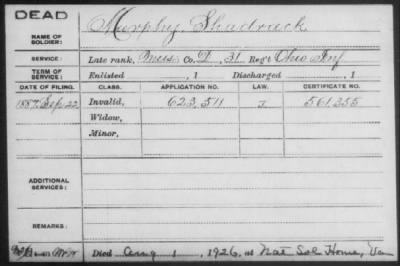 DEAD
NAME OF SOLDIER: Murphy, Shadrack
SERVICE: Late rank, Co. D, 31 Reg't Ohio Inf
TERM OF SERVICE: Enlisted , 1 Discharged , 1
DATE OF FILING. CLASS. APPLICATION NO. LAW. CERTIFICATE NO.
1887, Sep 22 Invalid, 623,511 561,355
Widow,
Minor,
ADDITIONAL SERVICES:
REMARKS:
Died Aug 1, 1926, at Nat Sol Home, Va